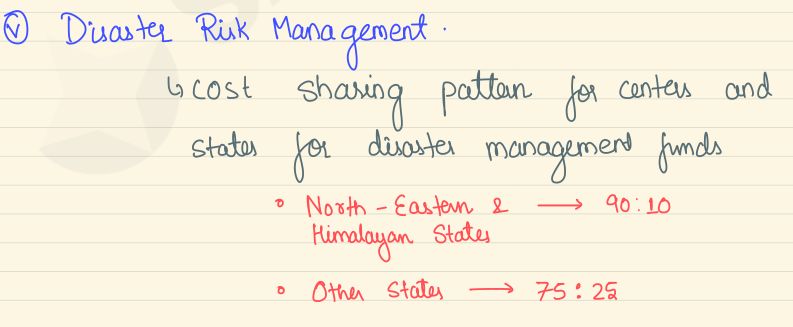 (v) Disaster Risk Management.
↳ cost sharing pattern for centers and
states for disaster management funds
• North-Eastern & → 90:10
Himalayan States
• Other States → 75:25